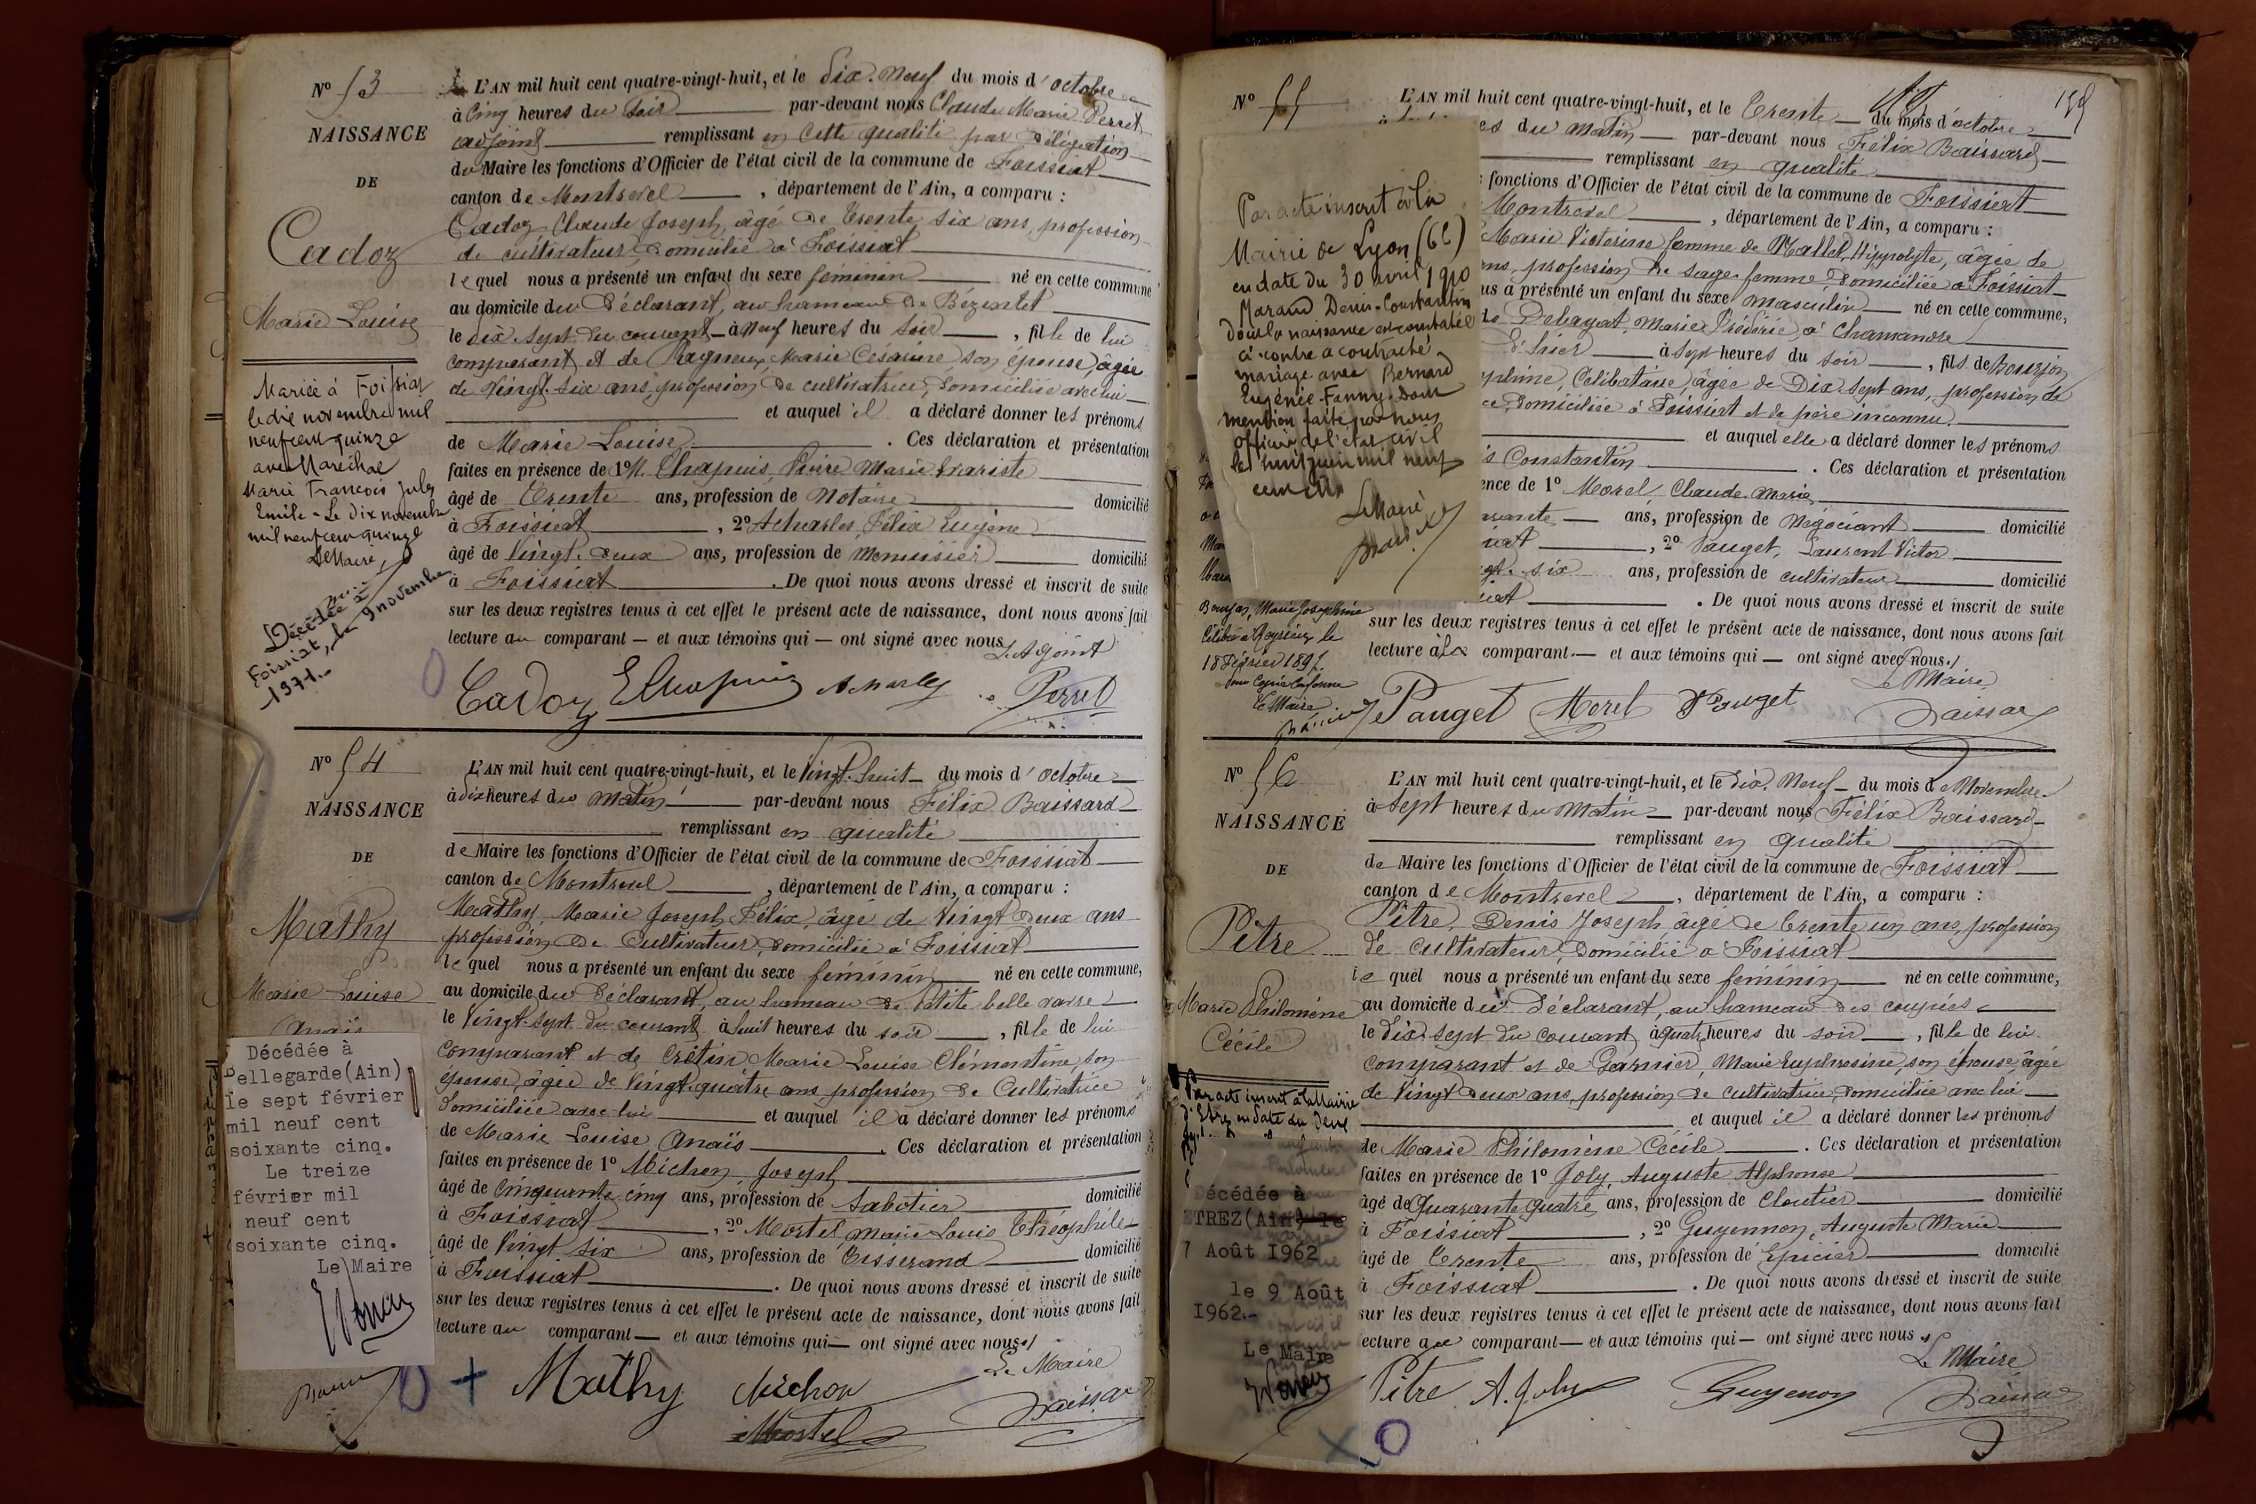 Nº 53
NAISSANCE
DE
Cadoz
Marie Louise
Mariée à Foissiat
le dix novembre mil
neuf cent quinze
avec Maréchal
Marie François Jules
Emile - Le dix novembre
mil neuf cent quinze
Le Maire,
Décédée à
Foissiat, le 9 novembre
1971.-
L'AN mil huit cent quatre-vingt-huit, et le dix-neuf du mois d'octobre
à cinq heures du soir par-devant nous Claude Marie Perret
adjoint remplissant en cette qualité par délégation
du Maire les fonctions d'Officier de l'état civil de la commune de Foissiat
canton de Montrevel, département de l'Ain, a comparu :
Cadoz Claude Joseph, âgé de trente six ans, profession
de cultivateur, domicilié à Foissiat
lequel nous a présenté un enfant du sexe féminin né en cette commune
au domicile du déclarant, au hameau de Bézentet
le dix sept du courant à neuf heures du soir, fille de lui
comparant et de Pagneux, Marie Césarine, son épouse, âgée
de vingt-six ans, profession de cultivatrice, domiciliée avec lui
et auquel il a déclaré donner les prénoms
de Marie Louise. Ces déclaration et présentation
faites en présence de 1º M. Chapuis, Marie Evariste
âgé de trente ans, profession de notaire domicilié
à Foissiat, 2º Acharles, Félix Eugène
âgé de vingt-deux ans, profession de menuisier domicilié
à Foissiat. De quoi nous avons dressé et inscrit de suite
sur les deux registres tenus à cet effet le présent acte de naissance, dont nous avons fait
lecture au comparant — et aux témoins qui — ont signé avec nous
L'Adjoint
Cadoz E Chapuis Acharles Perret
Nº 54
NAISSANCE
DE
Mathy
Marie Louise
Anaïs
Décédée à
Bellegarde(Ain)
le sept février
mil neuf cent
soixante cinq.
Le treize
février mil
neuf cent
soixante cinq.
Le Maire
L'AN mil huit cent quatre-vingt-huit, et le vingt-huit du mois d'octobre
à dix heures du matin par-devant nous Félix Baissard
remplissant en qualité
de Maire les fonctions d'Officier de l'état civil de la commune de Foissiat
canton de Montrevel, département de l'Ain, a comparu :
Mathy, Marie Joseph Félix, âgé de vingt deux ans
profession de cultivateur, domicilié à Foissiat
lequel nous a présenté un enfant du sexe féminin né en cette commune,
au domicile du déclarant, au hameau de Petite belle
le vingt-sept du courant à huit heures du soir, fille de lui
comparant et de Crétin Marie Louise Clémentine, son
épouse, âgée de vingt-quatre ans, profession de cultivatrice
domiciliée avec lui et auquel il a déclaré donner les prénoms
de Marie Louise Anaïs. Ces déclaration et présentation
faites en présence de 1º Michon, Joseph
âgé de cinquante-cinq ans, profession de sabotier domicilié
à Foissiat, 2º Mortel, Marie Louis Théophile
âgé de vingt six ans, profession de tisserand domicilié
à Foissiat. De quoi nous avons dressé et inscrit de suite
sur les deux registres tenus à cet effet le présent acte de naissance, dont nous avons fait
lecture au comparant — et aux témoins qui — ont signé avec nous
Le Maire
Mathy Michon Baissard
Mortel
159
Nº 55
Par acte inscrit à la
Mairie de Lyon (6e)
en date du 30 avril 1910
Marand Denis-Constantin
dont la naissance est constatée
ci-contre a contracté
mariage avec Bernard
Eugénie-Fanny. Dont
mention faite par nous
officier de l'état civil
le huit juin mil neuf
cent dix
Le Maire
Bourjon, Marie Joséphine
célébré à le
18 Février 1897.
Pour Copie Conforme
Le Maire
L'AN mil huit cent quatre-vingt-huit, et le trente du mois d'octobre
es du matin par-devant nous Félix Baissard
remplissant en qualité
fonctions d'Officier de l'état civil de la commune de Foissiat
Montrevel, département de l'Ain, a comparu :
Marie Victorine femme de Mallet, Hippolyte, âgée de
ans, profession de sage-femme, domiciliée à Foissiat
us a présenté un enfant du sexe masculin né en cette commune,
Debayat, Marie Frédéric, à Chamandre
d'hier à sept heures du soir, fils de Bourjon
phine, célibataire, âgée de dix-sept ans, profession de
ce, domiciliée à Foissiat et de père inconnu.
et auquel elle a déclaré donner les prénoms
s Constantin. Ces déclaration et présentation
ence de 1º Morel, Claude-Marie
arante ans, profession de négociant domicilié
iat, 2º Pauget, Laurent Victor
gt-six ans, profession de cultivateur domicilié
iat. De quoi nous avons dressé et inscrit de suite
sur les deux registres tenus à cet effet le présent acte de naissance, dont nous avons fait
lecture à la comparant — et aux témoins qui — ont signé avec nous
Le Maire
Fe Pauget Morel V Pauget Baissard
Nº 56
NAISSANCE
DE
Pitre
Marie Philomène
Cécile
Par acte inscrit à la Mairie
d'Etrez en date du deux
Décédée à
ETREZ(Ain) le
7 Août 1962
le 9 Août
1962.-
Le Maire
L'AN mil huit cent quatre-vingt-huit, et le dix-neuf du mois de novembre
à sept heures du matin par-devant nous Félix Baissard
remplissant en qualité
de Maire les fonctions d'Officier de l'état civil de la commune de Foissiat
canton de Montrevel, département de l'Ain, a comparu :
Pitre, Denis Joseph, âgé de trente un ans, profession
de cultivateur, domicilié à Foissiat
le quel nous a présenté un enfant du sexe féminin né en cette commune,
au domicile du déclarant, au hameau des
le dix-sept du courant, à quatre heures du soir, fille de lui
comparant et de Garnier, Marie Euphrosine, son épouse, âgée
de vingt deux ans, profession de cultivatrice, domiciliée avec lui
et auquel il a déclaré donner les prénoms
de Marie Philomène Cécile. Ces déclaration et présentation
faites en présence de 1º Joly, Auguste Alphonse
âgé de quarante quatre ans, profession de cloutier domicilié
à Foissiat, 2º Guyennon, Auguste Marie
âgé de trente ans, profession d'épicier domicilié
à Foissiat. De quoi nous avons dressé et inscrit de suite
sur les deux registres tenus à cet effet le présent acte de naissance, dont nous avons fait
lecture au comparant — et aux témoins qui — ont signé avec nous
Le Maire
Pitre A. Joly Guyenon Baissard